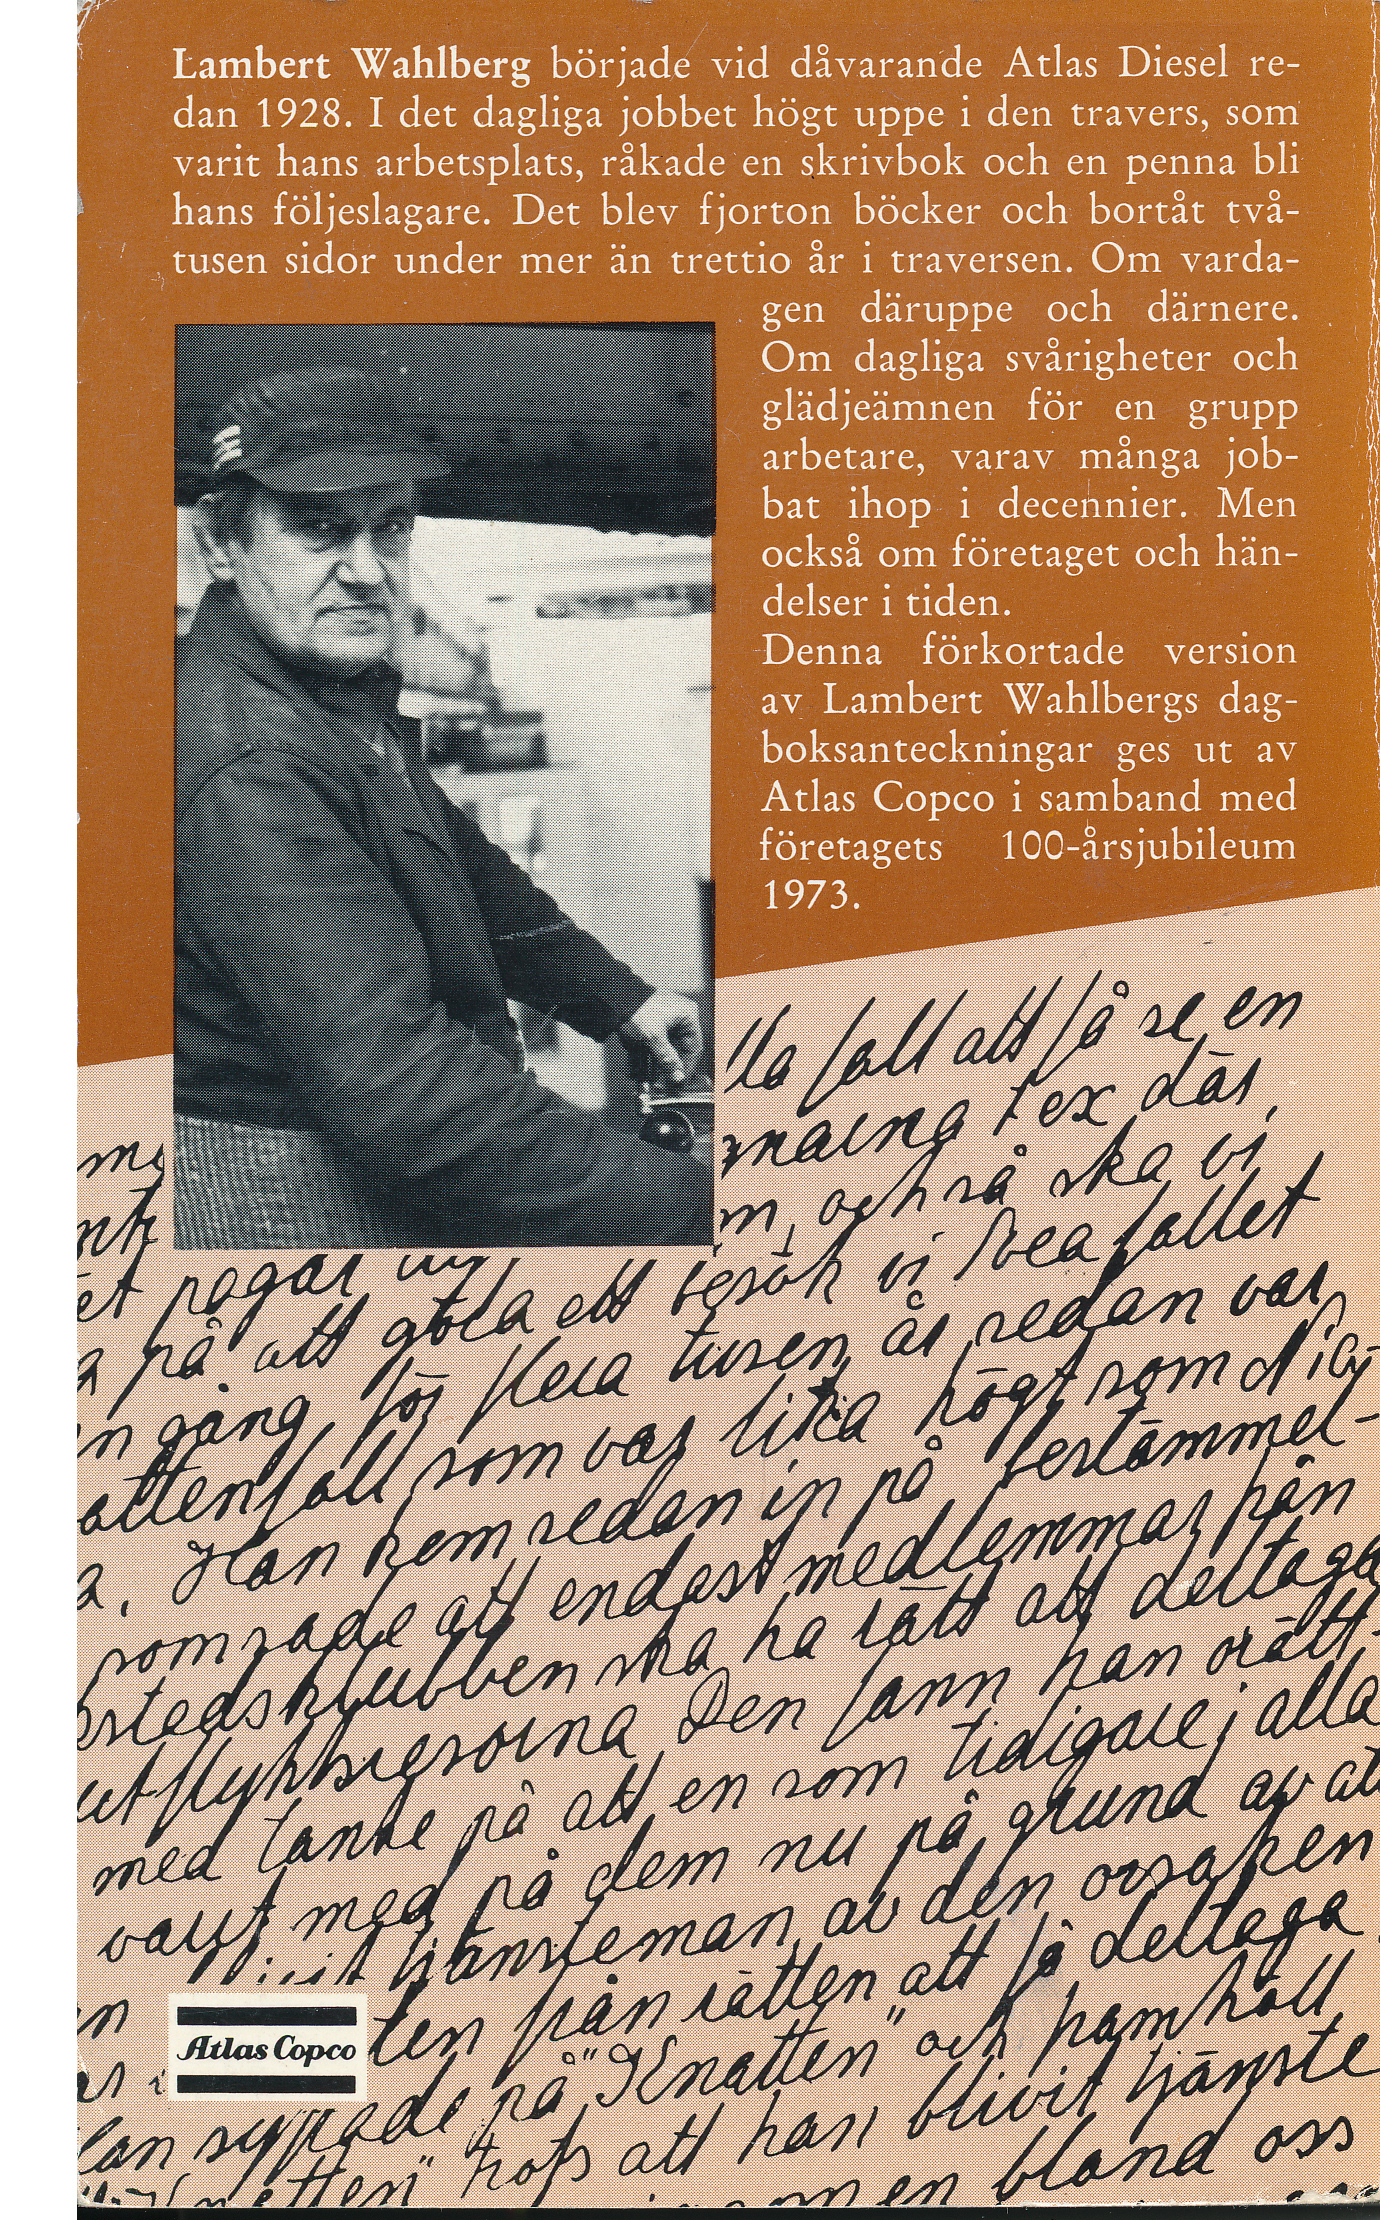 Lambert Wahlberg började vid dåvarande Atlas Diesel re-
dan 1928. I det dagliga jobbet högt uppe i den travers, som
varit hans arbetsplats, råkade en skrivbok och en penna bli
hans följeslagare. Det blev fjorton böcker och bortåt två-
tusen sidor under mer än trettio år i traversen. Om varda-
gen däruppe och därnere.
Om dagliga svårigheter och
glädjeämnen för en grupp
arbetare, varav många job-
bat ihop i decennier. Men
också om företaget och hän-
delser i tiden.
Denna förkortade version
av Lambert Wahlbergs dag-
boksanteckningar ges ut av
Atlas Copco i samband med
företagets 100-årsjubileum
1973.
fall att få se en
tex där,
och så ska vi
pågår
på att göra ett besök vi Svea fallet
gång för flera tusen år redan var
fall som var lika högt som
a. Han kom redan in på bestämmel-
som sade att endast medlemmar från
klubben ska ha rätt att deltaga
utflyktsresorna. Den fann han orätt-
med tanke på att en som tidigare i alla
varit med på dem nu på grund av att
tjänsteman av den orsaken
från rätten att få deltaga
syftade på "Knatten" och framhöll
trots att han blivit tjänste
bland oss
Atlas Copco